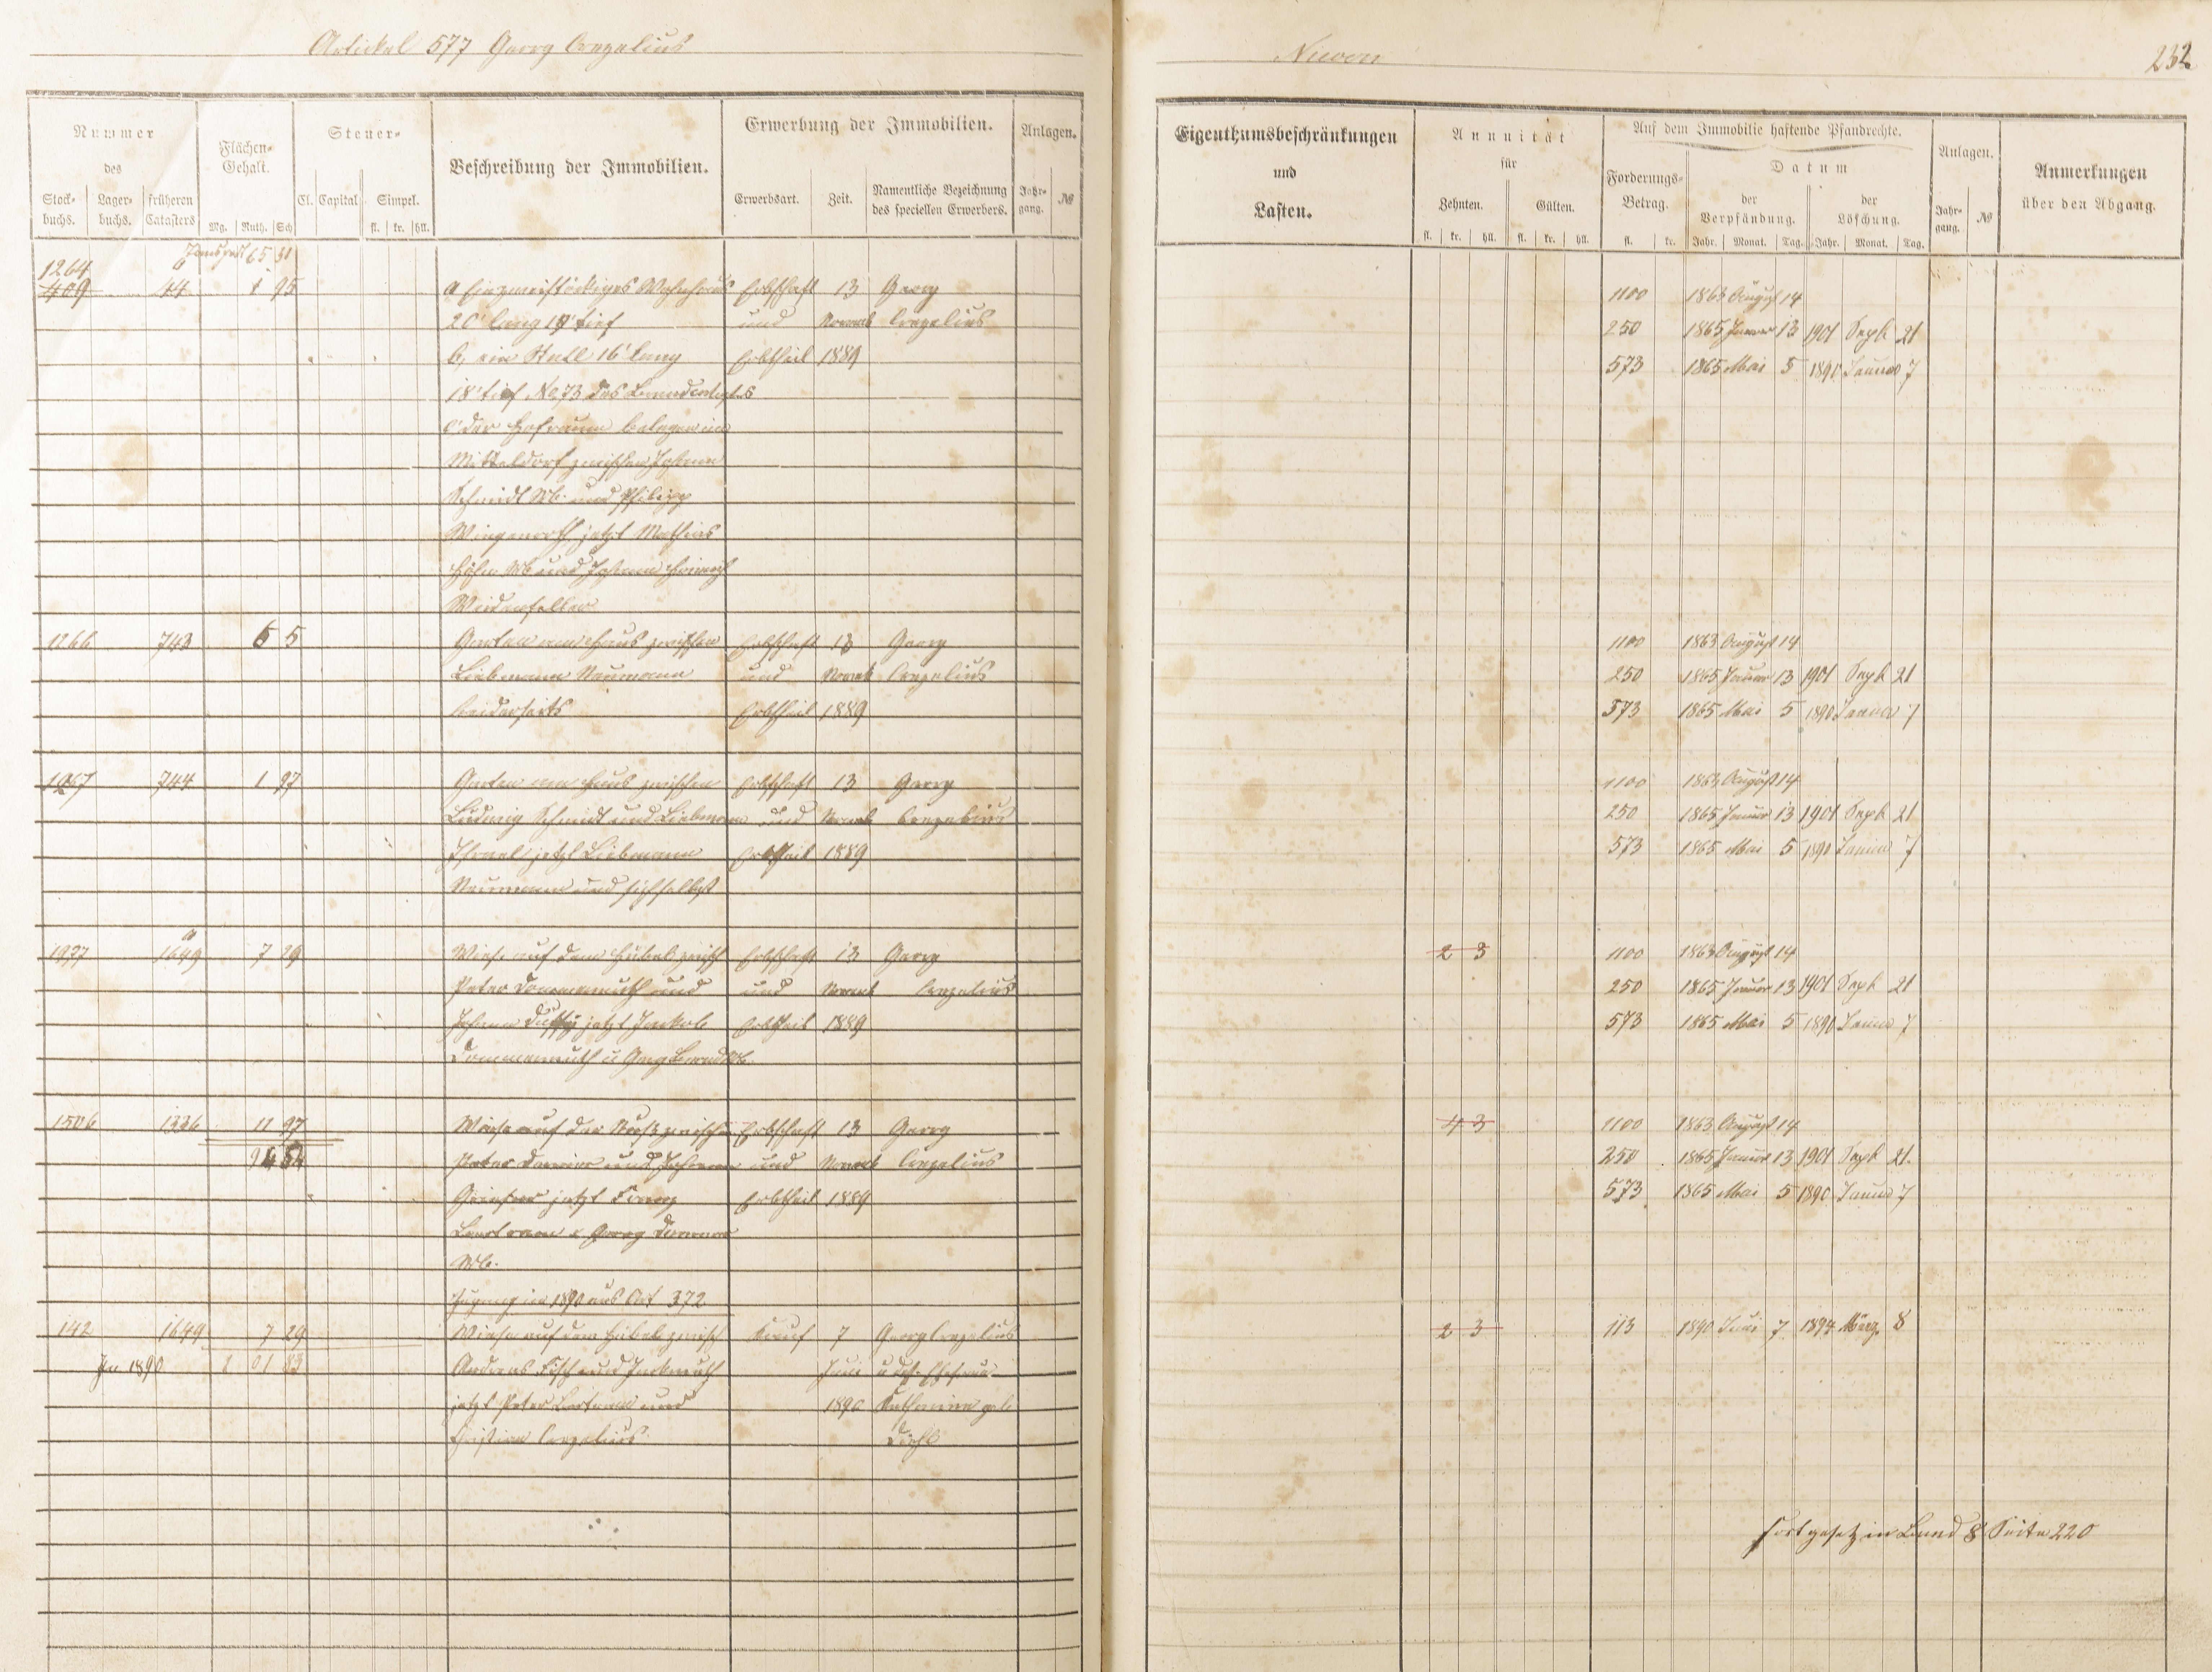 Artickel 577 Georg Crezelius
Nummer
des
Stock-
buchs.
Lager-
buchs.
früheren
Catasters
Flächen-
Gehalt.
Mg. Ruth. Sch
Steuer-
Cl. Capital Simpel.
fl. kr. hll.
Beschreibung der Immobilien.
Erwerbung der Immobilien.
Erwerbsart. Zeit. Namentliche Bezeichnung
des speciellen Erwerbers.
Anlagen.
Jahr-
gang. №
65 31
1264
409 44 1 95 a Ein zweistöckiges Wohnhaus Erbschaft 13 Georg
20' lang 19' tief und Novemb Crezelius
b, ein Stall 16' lang Erbtheil 1889
18' tief No 73 des Brandcatasters
c, der Hofraum belegen im
Mitteldorf zwischen Johann
Schmidt Wb. und Philipp
jetzt Mathias
Höhn Wb und Johann Heinrich
Weidenfeller
1266 743 6 5 Garten am Haus zwischen Erbschaft 13 Georg
Liebmann Neumann und Novemb Crezelius
beiderseits Erbtheil 1889
1267 744 1 97 Garten am Haus zwischen Erbschaft 13 Georg
Ludwig Schmidt und Liebmann und Novemb Crezelius
Israel jetzt Liebmann Erbtheil 1889
Neumann und sich selbst
a
1937 1649 7 29 Wiese auf dem Hübel zwisch Erbschaft 13 Georg
Peter Dommermuth und und Novemb Crezelius
Johann jetzt Jakob Erbtheil 1889
Dommermuth u Georg Wb.
1506 1336 11 97 Wiese auf der zwischen Erbschaft 13 Georg
94 54 Peter und Johann und Novemb Crezelius
jetzt Franz Erbtheil 1889
u. Georg
Wb.
Zugang in 1890 aus Art 372
142 1649 7 29 Wiese auf dem Hübel zwisch Kauf 7 Georg Crezelius
In 1890 1 01 83 Andreas und Juni u. dess. Ehefrau
jetzt Peter und 1890 Katharina geb
Christian Crezelius Diehl
Nievern
232
Eigenthumsbeschränkungen
und
Lasten.
Annuität
für
Zehnten. Gülten.
fl. kr. hll. fl. kr. hll.
Auf dem Immobilie haftende Pfandrechte.
Forderungs-
Betrag.
fl. kr.
Datum
der
Verpfändung.
Jahr. Monat. Tag.
der
Löschung.
Jahr. Monat. Tag.
Anlagen.
Jahr-
gang. №
Anmerkungen
über den Abgang.
1100 1863 August 14
250 1865 Januar 13 1901 Sept 21
573 1865 Mai 5 1890 Januar 7
1100 1863 August 14
250 1865 Januar 13 1901 Sept 21
573 1865 Mai 5 1890 Januar 7
1100 1863 August 14
250 1865 Januar 13 1901 Sept 21
573 1865 Mai 5 1890 Januar 7
2 3 1100 1863 August 14
250 1865 Januar 13 1901 Sept 21
573 1865 Mai 5 1890 Januar 7
4 3 1100 1863 August 14
250 1865 Januar 13 1901 Sept 21.
573 1865 Mai 5 1890 Januar 7
2 3 113 1890 Juni 7 1894 März 8
fortgesetz in Band 8 Seite 220